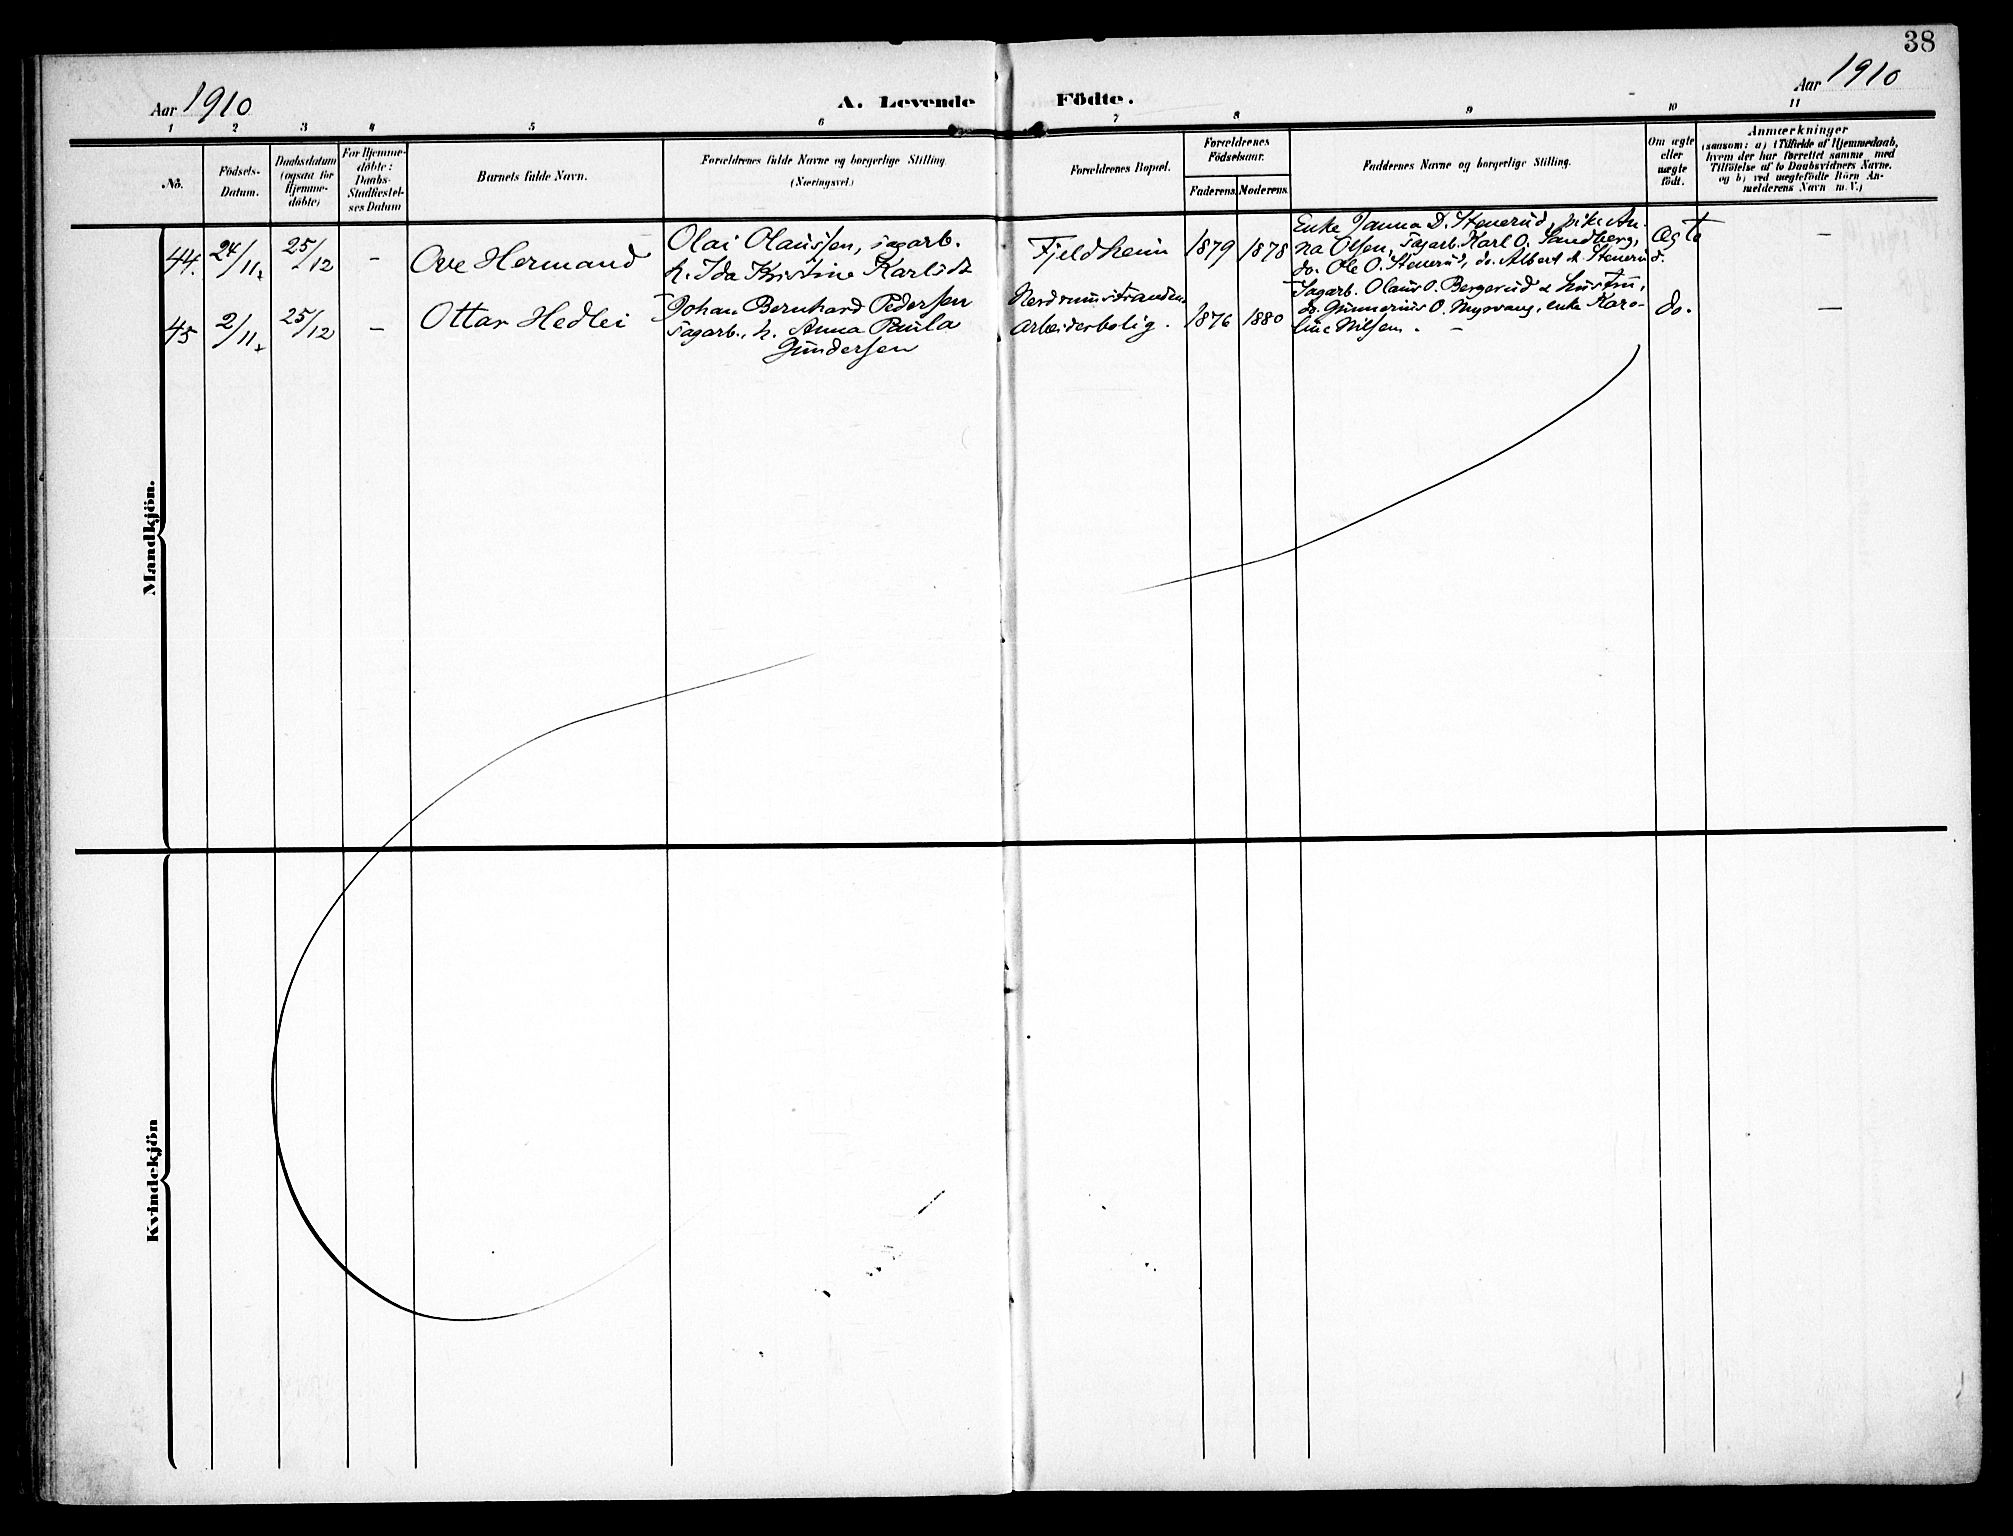 38
Aar 1910
A. Levende Födte.
Aar 1910
1 2 3 4 5 6 7 8 9 10 11
No.
Födsels-
Datum.
Daabsdatum
(ogsaa for
Hjemme-
döbte)
For Hjemme-
döbte:
Daabs-
Stadfæstel-
ses Datum
Barnets fulde Navn.
Forældrenes fulde Navne og borgerlige Stilling
(Næringsvei.)
Forældrenes Bopæl.
Forældrenes
Födselsaar.
Faderens.
Moderens.
Faddernes Navne og borgerlige Stilling.
Om ægte
eller
uægte
födt.
Anmærkninger
(saasom: a) i Tilfælde af Hjemmedaab,
hvem der har forrettet samme med
Tilföielse af to Daabsvidners Navne.
og b) ved uægtefödte Börn An-
melderens Navn m. V.)
Mandkjön.
44.
24/11.
25/12
-
Ove Hermand
Olai Olaussen, sagarb.
h. Ida Kristine Karlsdt
Fjeldheim
1879
1878
Enke Janna D. Stenerud, pike An-
na Olsen, sagarb. Karl O. Sandberg,
do. Ole O. Stenerud, do. Albert A. Stenerud.
Ægte
-
45
2/11.
25/12
-
Ottar Hedlei
Johan Bernhard Pedersen
sagarb., h. Anna Paula
Gundersen
Nordrumstranden.
Arbeiderbolig.
1876
1880
Sagarb. Olaus O. Bergerud & hustru,
do. Gunnerius O. Myrvang, enke Karo-
line Nilsen. -
do.
-
Kvindekjön